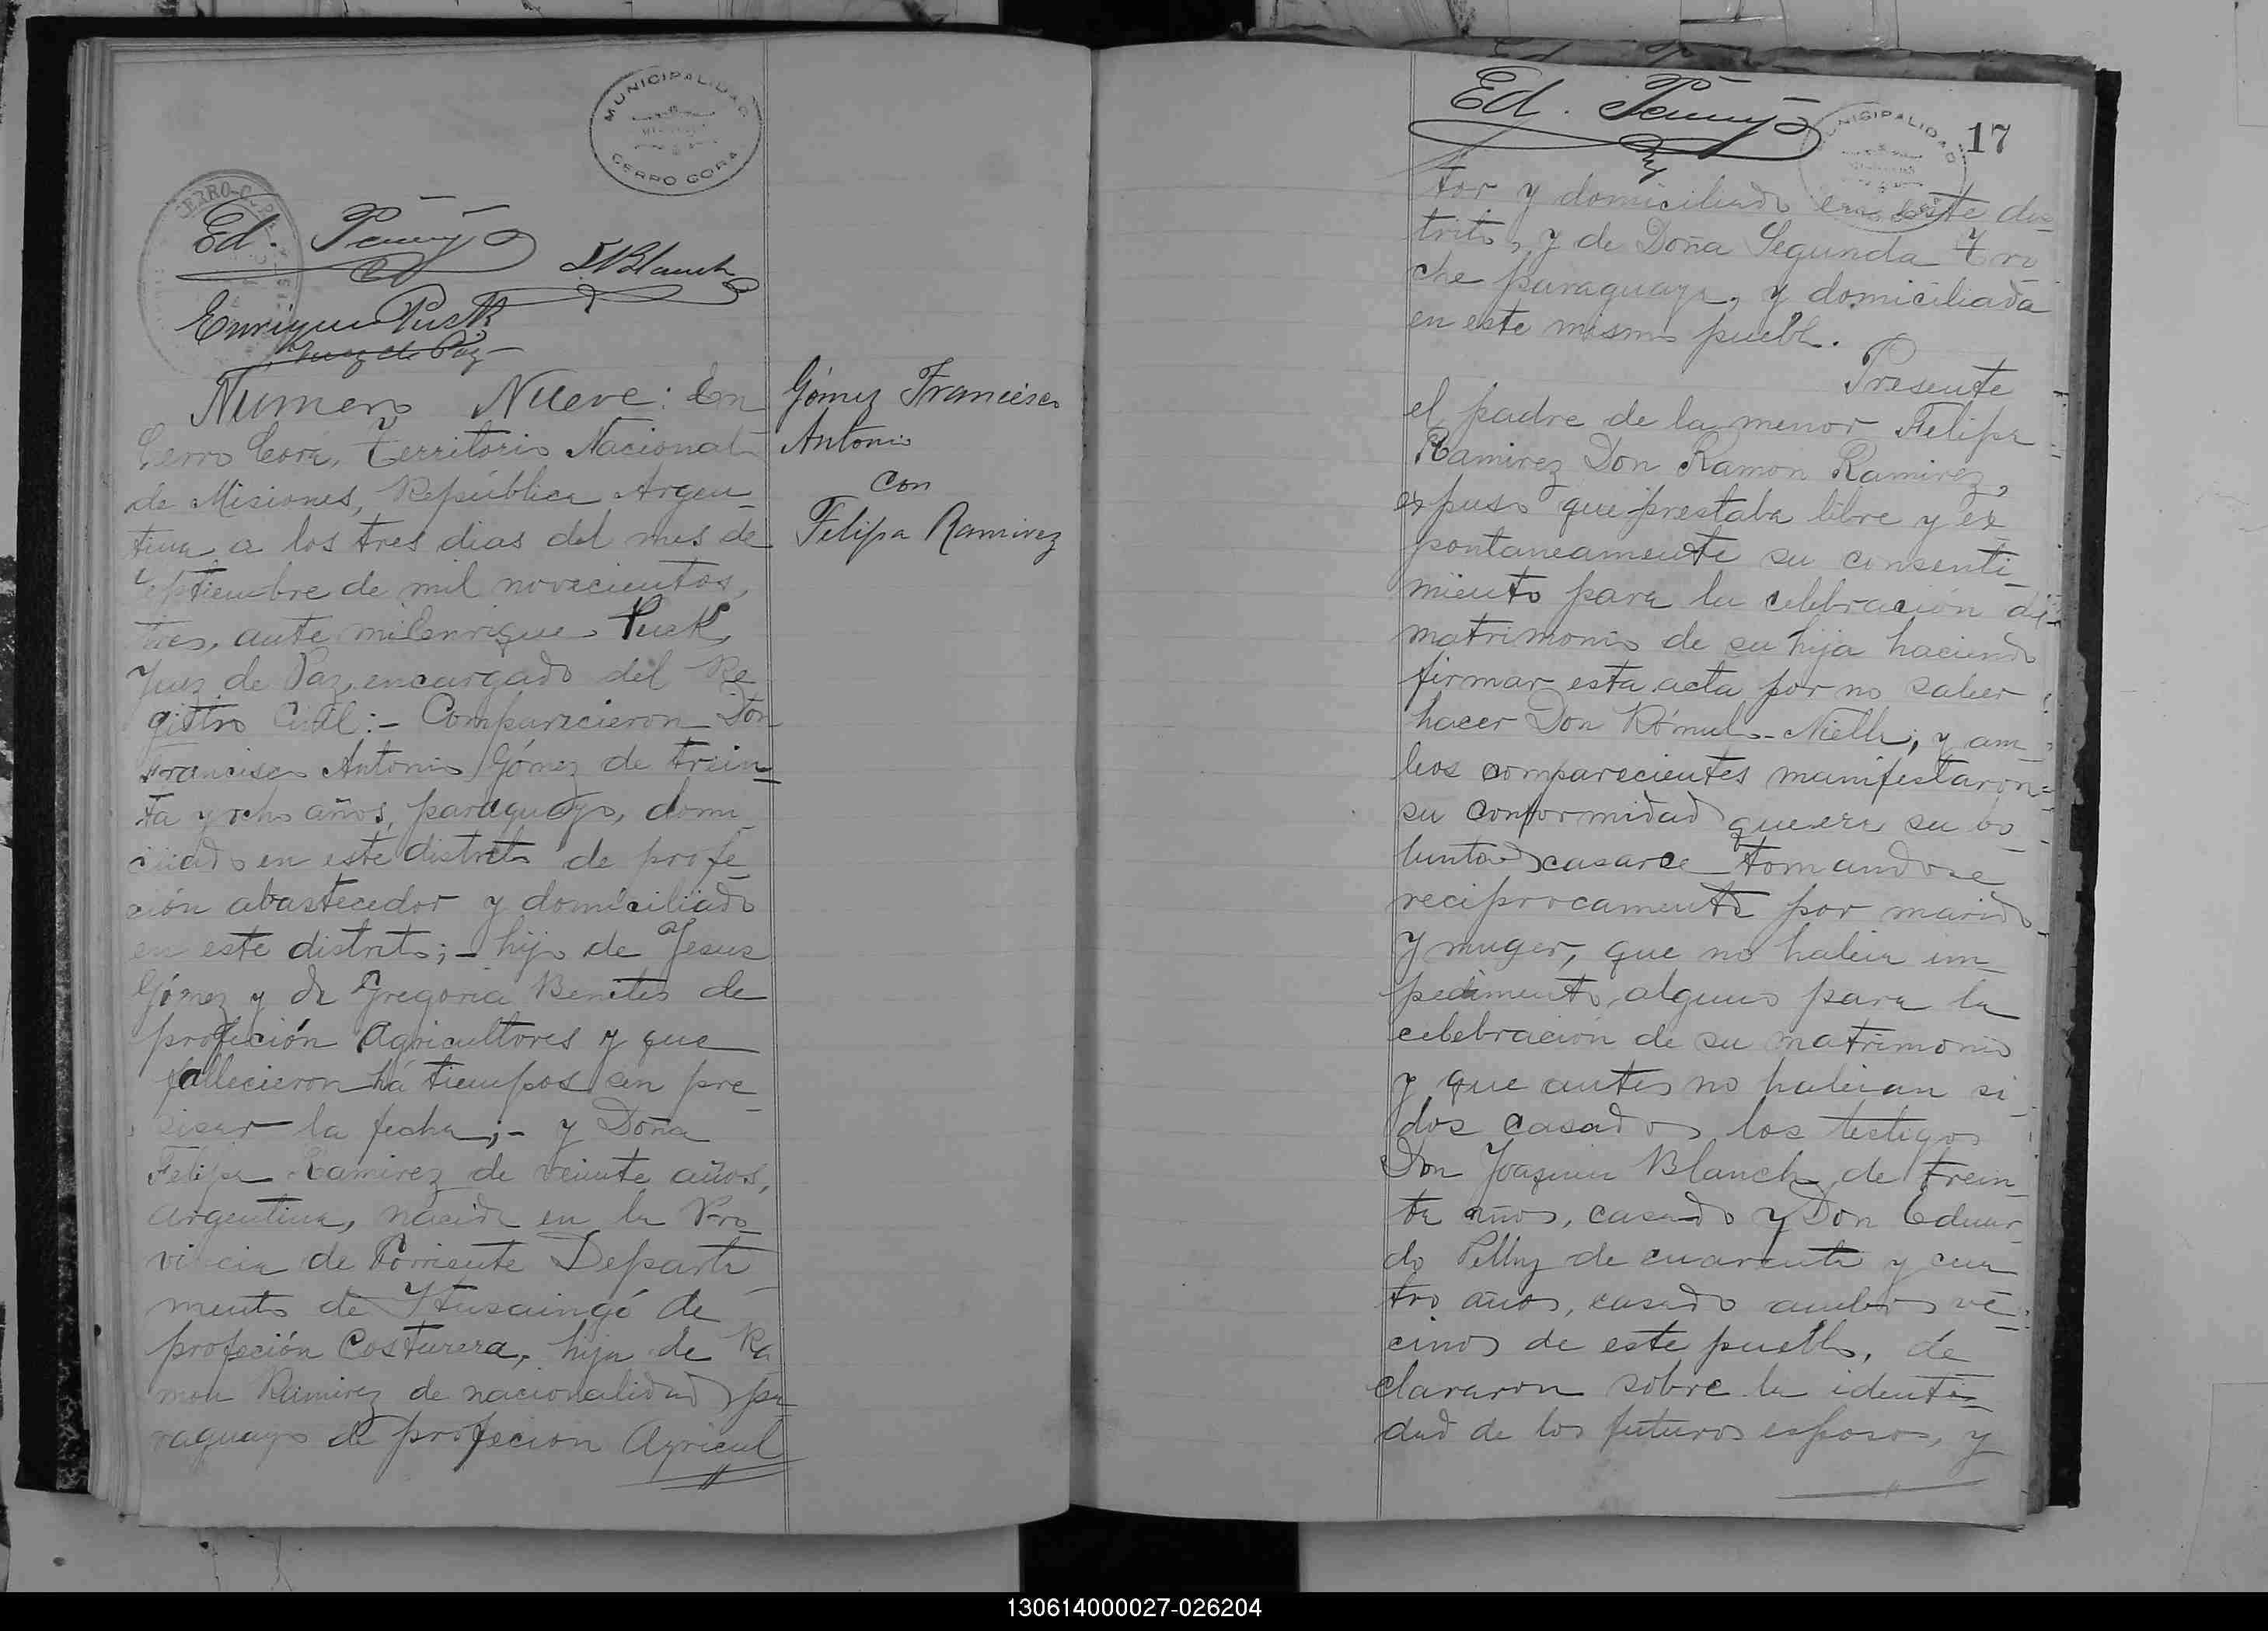 MUNICIPALIDAD
CERRO CORÁ
CERRO-CORÁ
Ed.
J Blanch
Enrique Puck
Juez de Paz
Gómez Francisco
Antonio
con
Felipa Ramirez
Numero Nueve: En
Cerro Corá, Territorio Nacional
de Misiones, República Argen-
tina a los tres dias del mes de
Septiembre de mil novecientos,
tres, ante mi Enrique Puck,
Juez de Paz, encargado del Re
gistro Civil:- Comparecieron Don
Francisco Antonio Gómez de trein-
ta y ocho años, paraguayo, domi
ciliado en este distrito de profe-
ción abastecedor y domiciliado
en este distrito;- hijo de Jesus
Gómez y de Gregoria Benites de
profeción Agricultores y que
fallecieron há tiempos sin pre-
sisar la fecha;- y Doña
Felipa Ramirez de veinte años,
argentina, nacida en la Pro-
vincia de Corriente Departa-
mento de Ytusaingó de
profeción Costurera, hija de Ra
mon Ramirez de nacionalidad pa-
raguayo de profecion Agricul
Ed.
MUNISIPALIDAD
17
tor y domiciliado en este dis-
trito, y de Doña Segunda
che paraguaya, y domiciliada
en este mismo pueblo.
Presente
el padre de la menor Felipa
Ramirez Don Ramon Ramirez,
expuso que prestaba libre y ex
pontaneamente su consenti-
miento para la celebración del
matrimonio de su hija haciendo
firmar esta acta por no saber
hacer Don Rómulo Niella; y am-
bos comparecientes manifestaron
su conformidad que era su vo-
luntad casarce tomandose
reciprocamente por marido
y muger, que no habia im-
pedimento alguno para la
celebración de su matrimonio
y que antes no habian si-
dos casados los testigos
Don Joaquin Blanch de trein-
ta años, casado y Don Eduar-
do de cuarenta y cua
tro años, casado ambos ve-
cinos de este pueblo, de
clararon sobre la identi-
dad de los futuros esposos, y
130614000027-026204